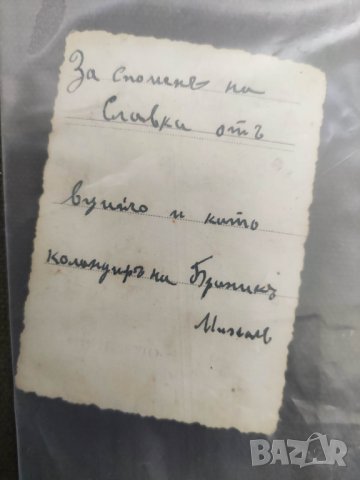 За споменъ на
Славка отъ
вуйчо и като
командиръ на Бриникъ
Михаль
BAZAR
bg